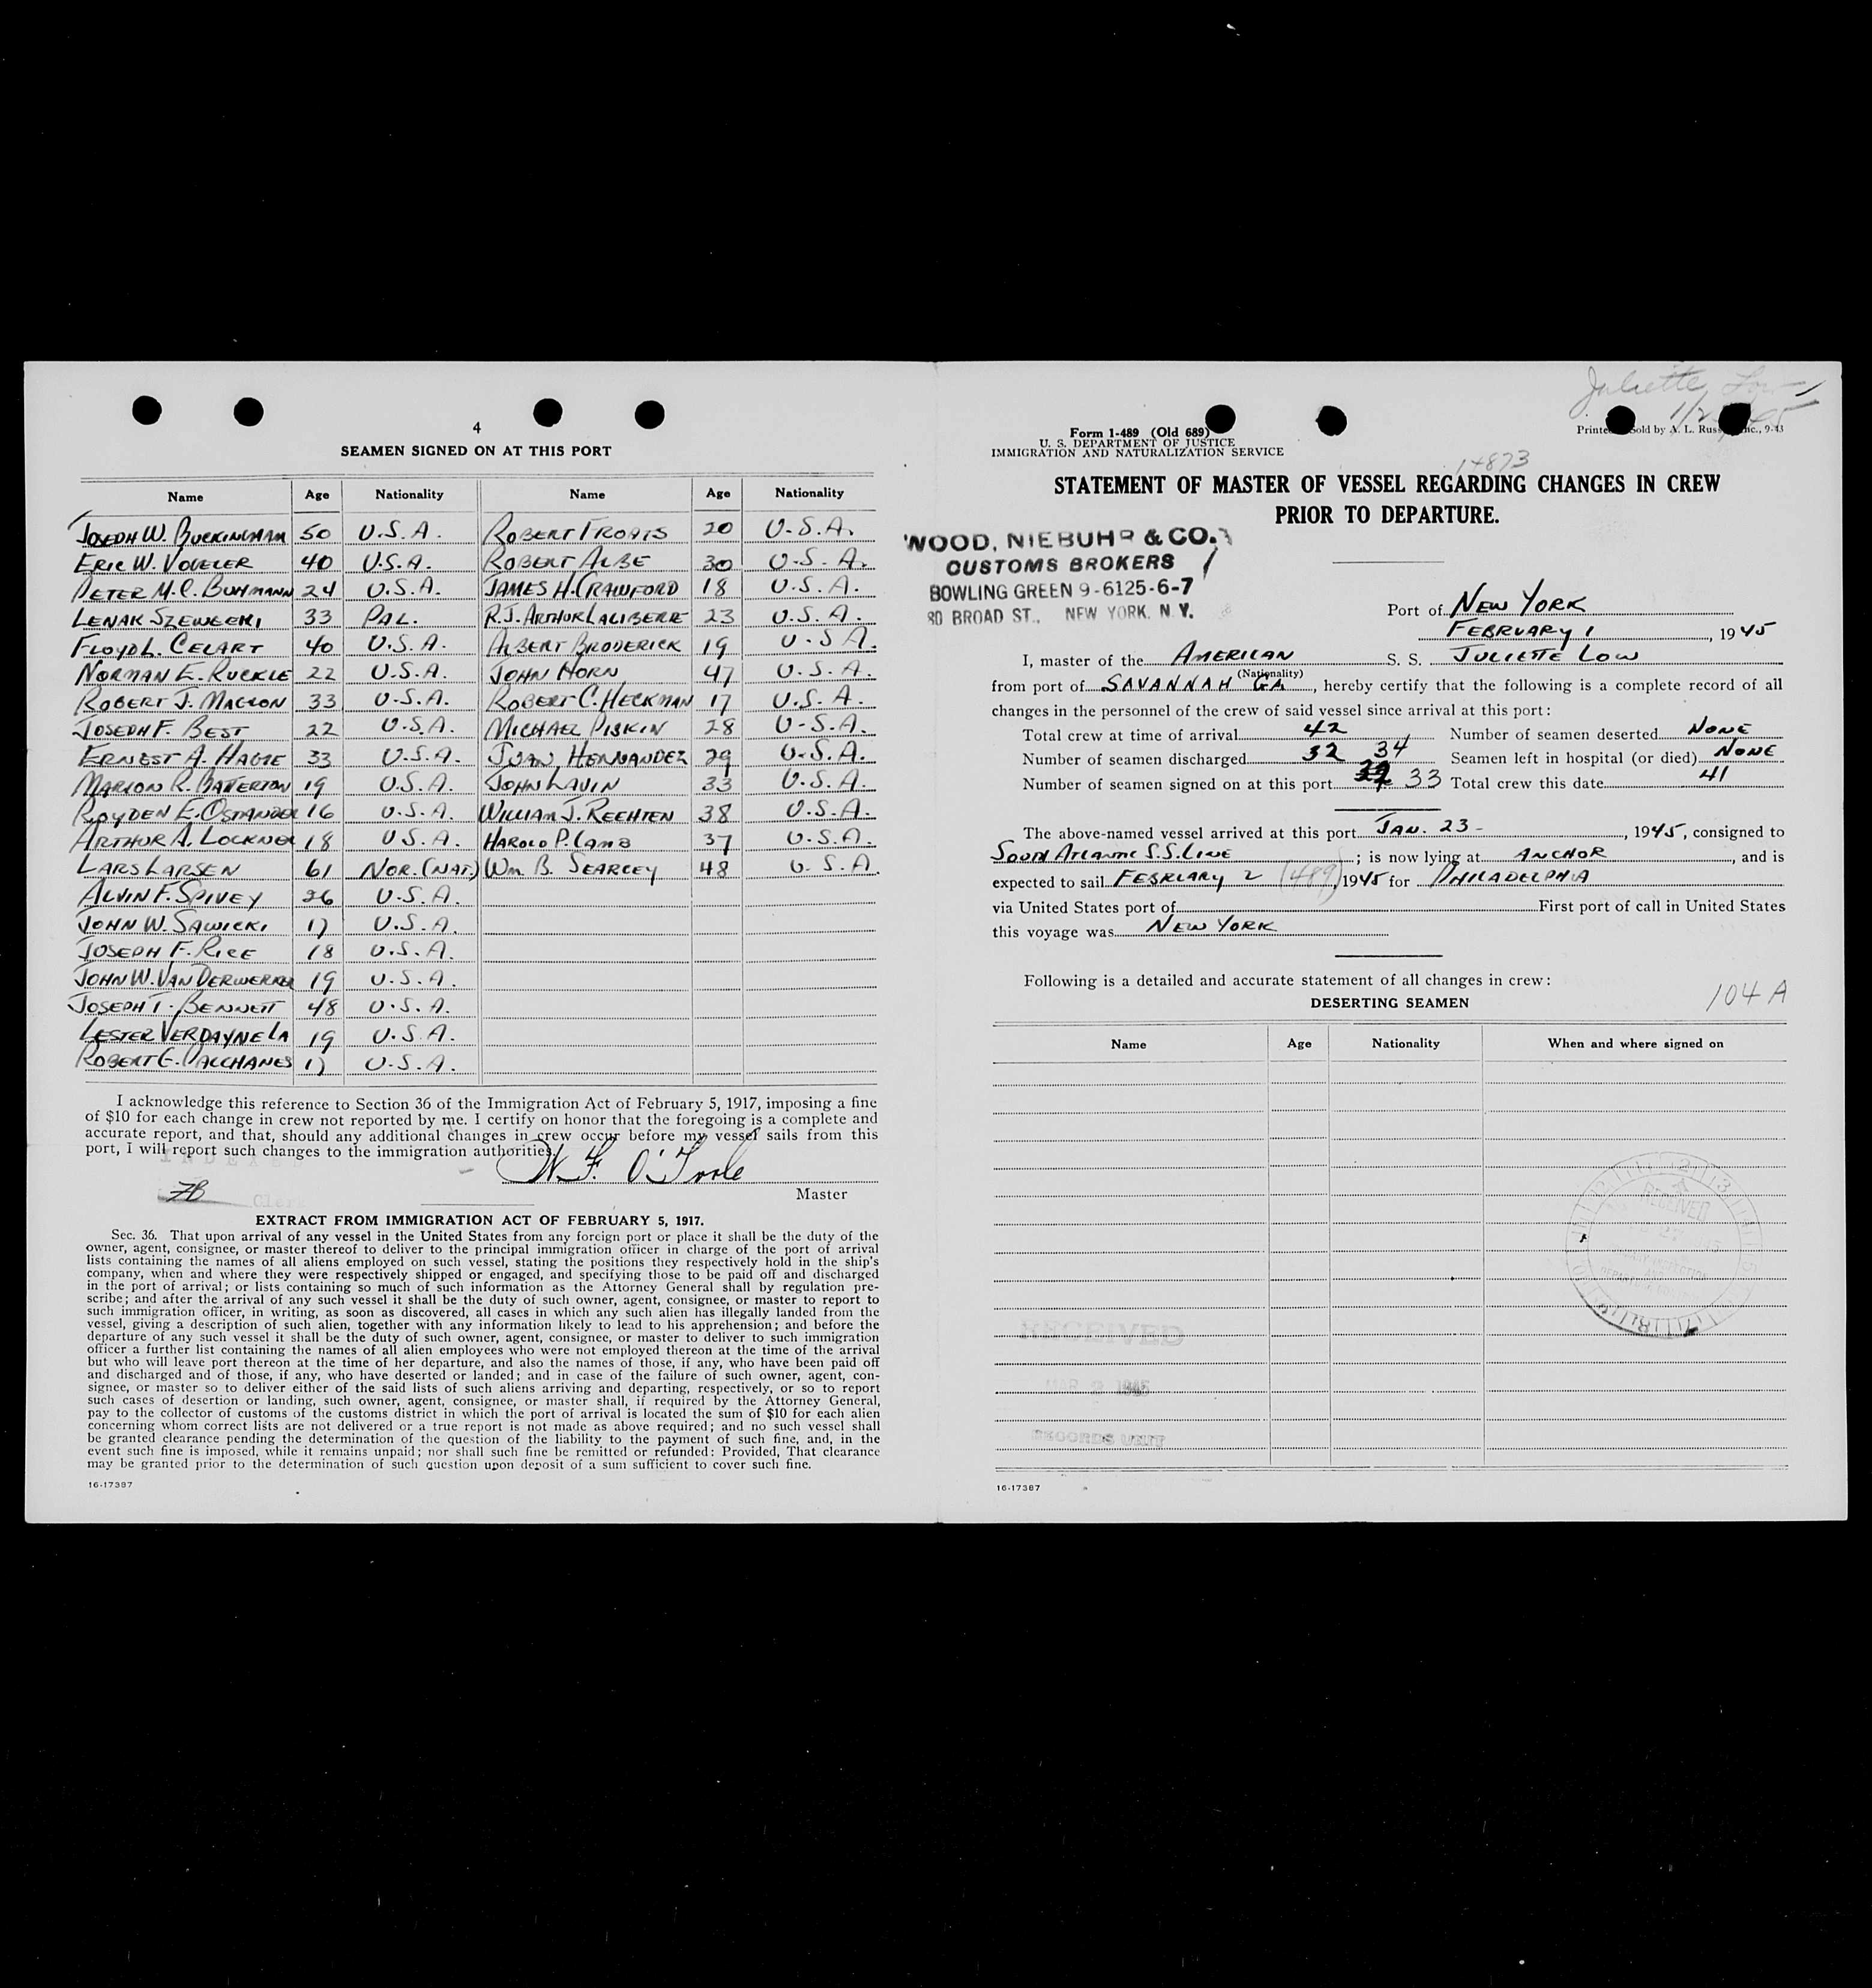 4
SEAMEN SIGNED ON AT THIS PORT
Name Age Nationality Name Age Nationality
JOSEPH W. BUCKINGHAM 50 U.S.A. ROBERT TROATS 20 U.S.A.
ERIC W. VOGELER 40 U.S.A. ROBERT ALBE 30 U.S.A.
PETER M.C. BUHMANN 24 U.S.A. JAMES H. CRAWFORD 18 U.S.A.
LENAK 33 R.J. ARTHUR LALIBERTE 23 U.S.A.
FLOYD L. CELART 40 U.S.A. ALBERT BRODERICK 19 U.S.A.
NORMAN E. RUCKLE 22 U.S.A. JOHN HORN 47 U.S.A.
ROBERT J. 33 U.S.A. ROBERT C. HECKMAN 17 U.S.A.
JOSEPH F. BEST 22 U.S.A. MICHAEL PISKIN 28 U.S.A.
ERNEST A. HAGIE 33 U.S.A. JUAN HERNANDEZ 29 U.S.A.
MARION R. BATTERTON 19 U.S.A. JOHN LAVIN 33 U.S.A.
ROYDEN E. OSTANDER 16 U.S.A. WILLIAM J. RECHTEN 38 U.S.A.
ARTHUR A. LOCKNER 18 U.S.A. HAROLD P. LAMB 37 U.S.A.
LARS LARSEN 61 NOR. (NAT.) WM. B. SEARCEY 48 U.S.A.
ALVIN F. SPIVEY 26 U.S.A.
JOHN W. SAWICKI 17 U.S.A.
JOSEPH F. RICE 18 U.S.A.
JOHN W. VAN DERWERKER 19 U.S.A.
JOSEPH T. BENNETT 48 U.S.A.
LESTER VERDAYNE LA 19 U.S.A.
ROBERT E. 17 U.S.A.
I acknowledge this reference to Section 36 of the Immigration Act of February 5, 1917, imposing a fine
of $10 for each change in crew not reported by me. I certify on honor that the foregoing is a complete and
accurate report, and that, should any additional changes in crew occur before my vessel sails from this
port, I will report such changes to the immigration authorities.
INDEXED
W. F. O'Toole
Clerk
Master
EXTRACT FROM IMMIGRATION ACT OF FEBRUARY 5, 1917.
Sec. 36. That upon arrival of any vessel in the United States from any foreign port or place it shall be the duty of the
owner, agent, consignee, or master thereof to deliver to the principal immigration officer in charge of the port of arrival
lists containing the names of all aliens employed on such vessel, stating the positions they respectively hold in the ship's
company, when and where they were respectively shipped or engaged, and specifying those to be paid off and discharged
in the port of arrival; or lists containing so much of such information as the Attorney General shall by regulation pre-
scribe; and after the arrival of any such vessel it shall be the duty of such owner, agent, consignee, or master to report to
such immigration officer, in writing, as soon as discovered, all cases in which any such alien has illegally landed from the
vessel, giving a description of such alien, together with any information likely to lead to his apprehension; and before the
departure of any such vessel it shall be the duty of such owner, agent, consignee, or master to deliver to such immigration
officer a further list containing the names of all alien employees who were not employed thereon at the time of the arrival
but who will leave port thereon at the time of her departure, and also the names of those, if any, who have been paid off
and discharged and of those, if any, who have deserted or landed; and in case of the failure of such owner, agent, con-
signee, or master so to deliver either of the said lists of such aliens arriving and departing, respectively, or so to report
such cases of desertion or landing, such owner, agent, consignee, or master shall, if required by the Attorney General,
pay to the collector of customs of the customs district in which the port of arrival is located the sum of $10 for each alien
concerning whom correct lists are not delivered or a true report is not made as above required; and no such vessel shall
be granted clearance pending the determination of the question of the liability to the payment of such fine, and, in the
event such fine is imposed, while it remains unpaid; nor shall such fine be remitted or refunded: Provided, That clearance
may be granted prior to the determination of such question upon deposit of a sum sufficient to cover such fine.
16-17387
Juliette Low
Form 1-489 (Old 689)
U. S. DEPARTMENT OF JUSTICE
IMMIGRATION AND NATURALIZATION SERVICE
Sold by A. L. Inc., 9-43
14873
STATEMENT OF MASTER OF VESSEL REGARDING CHANGES IN CREW
PRIOR TO DEPARTURE.
WOOD, NIEBUHR & CO.
CUSTOMS BROKERS
BOWLING GREEN 9-6125-6-7
80 BROAD ST., NEW YORK, N.Y.
Port of NEW YORK
FEBRUARY 1, 1945
I, master of the AMERICAN S. S. JULIETTE LOW
(Nationality)
from port of SAVANNAH GA, hereby certify that the following is a complete record of all
changes in the personnel of the crew of said vessel since arrival at this port:
Total crew at time of arrival 42 Number of seamen deserted NONE
Number of seamen discharged 32 34 Seamen left in hospital (or died) NONE
Number of seamen signed on at this port 33 Total crew this date 41
The above-named vessel arrived at this port JAN. 23 -, 1945, consigned to
SOUTH ATLANTIC S.S. LINE; is now lying at ANCHOR, and is
expected to sail FEBRUARY 2 (489) 1945 for PHILADELPHIA
via United States port of First port of call in United States
this voyage was NEW YORK
Following is a detailed and accurate statement of all changes in crew:
DESERTING SEAMEN
104 A
Name Age Nationality When and where signed on
RECEIVED
RECEIVED
MAR 2 1945
RECORDS UNIT
16-17387